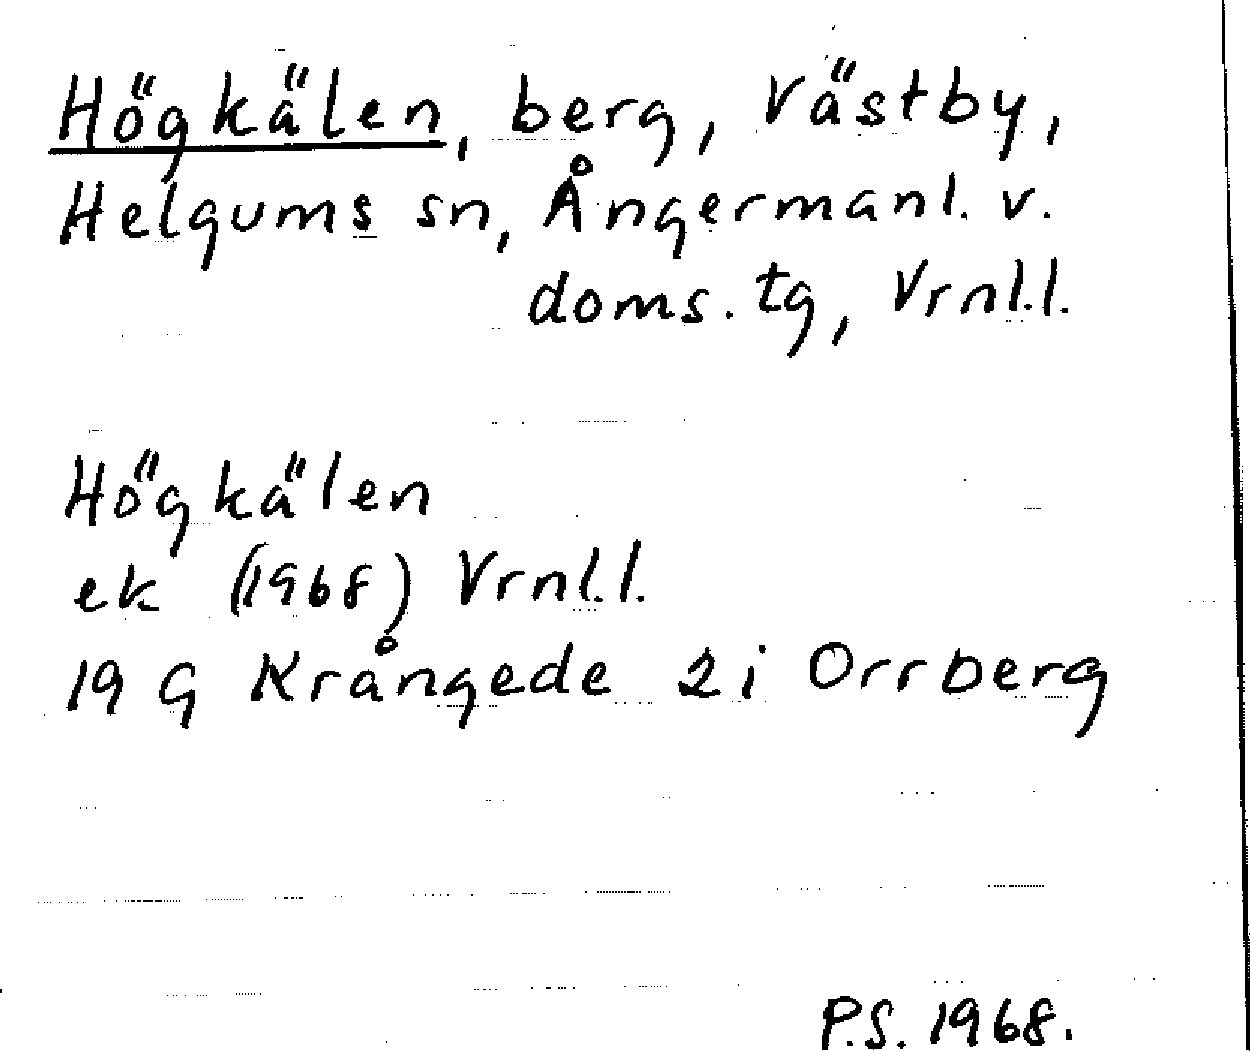 Högkälen, berg, Västby,
Helgums sn, Ångermanl. v.
doms. tg, Vrnl.l.
Högkälen
ek (1968) Vrnl.l.
19 G Krångede 2 i Orrberg
P.S. 1968.